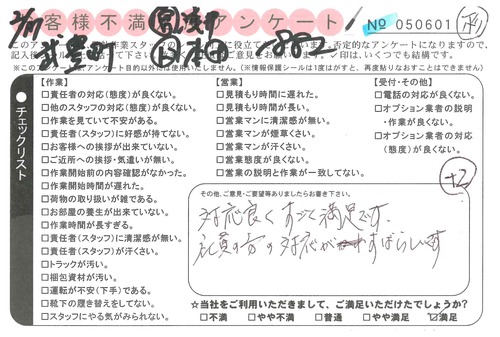 お客様不満 アンケート
№ 050601
【作業】
□責任者の対応(態度)が良くない。
□他のスタッフの対応(態度)が良くない。
□作業を見ていて不安がある。
□責任者(スタッフ)に好感が持てない。
□お客様への挨拶が出来ていない。
□ご近所への挨拶・気遣いが無い。
□作業開始前の内容確認がなかった。
□作業開始時間が遅れた。
□荷物の取り扱いが雑である。
□お部屋の養生が出来ていない。
□作業時間が長すぎる。
□責任者(スタッフ)に清潔感が無い。
□責任者(スタッフ)が汗くさい。
□トラックが汚い。
□梱包資材が汚い。
□運転が不安(下手)である。
□靴下の履き替えをしてない。
□スタッフにやる気がみられない。
【営業】
□見積もり時間に遅れた。
□見積もり時間が長い。
□営業マンに清潔感が無い。
□営業マンが煙草くさい。
□営業マンが汗くさい。
□営業態度が良くない。
□営業の説明と作業が一致してない。
【受付・その他】
□電話の対応が良くない。
□オプション業者の説明
・作業が良くない。
□オプション業者の対応
(態度)が良くない。
チェックリスト
+2
その他、ご意見・ご要望等ありましたらお書き下さい。
対応良くすごく満足です。
社員の方の対応がすばらしいです
☆当社をご利用いただきまして、ご満足いただけたでしょうか?
□不満 □やや不満 □普通 □やや満足 ☑満足